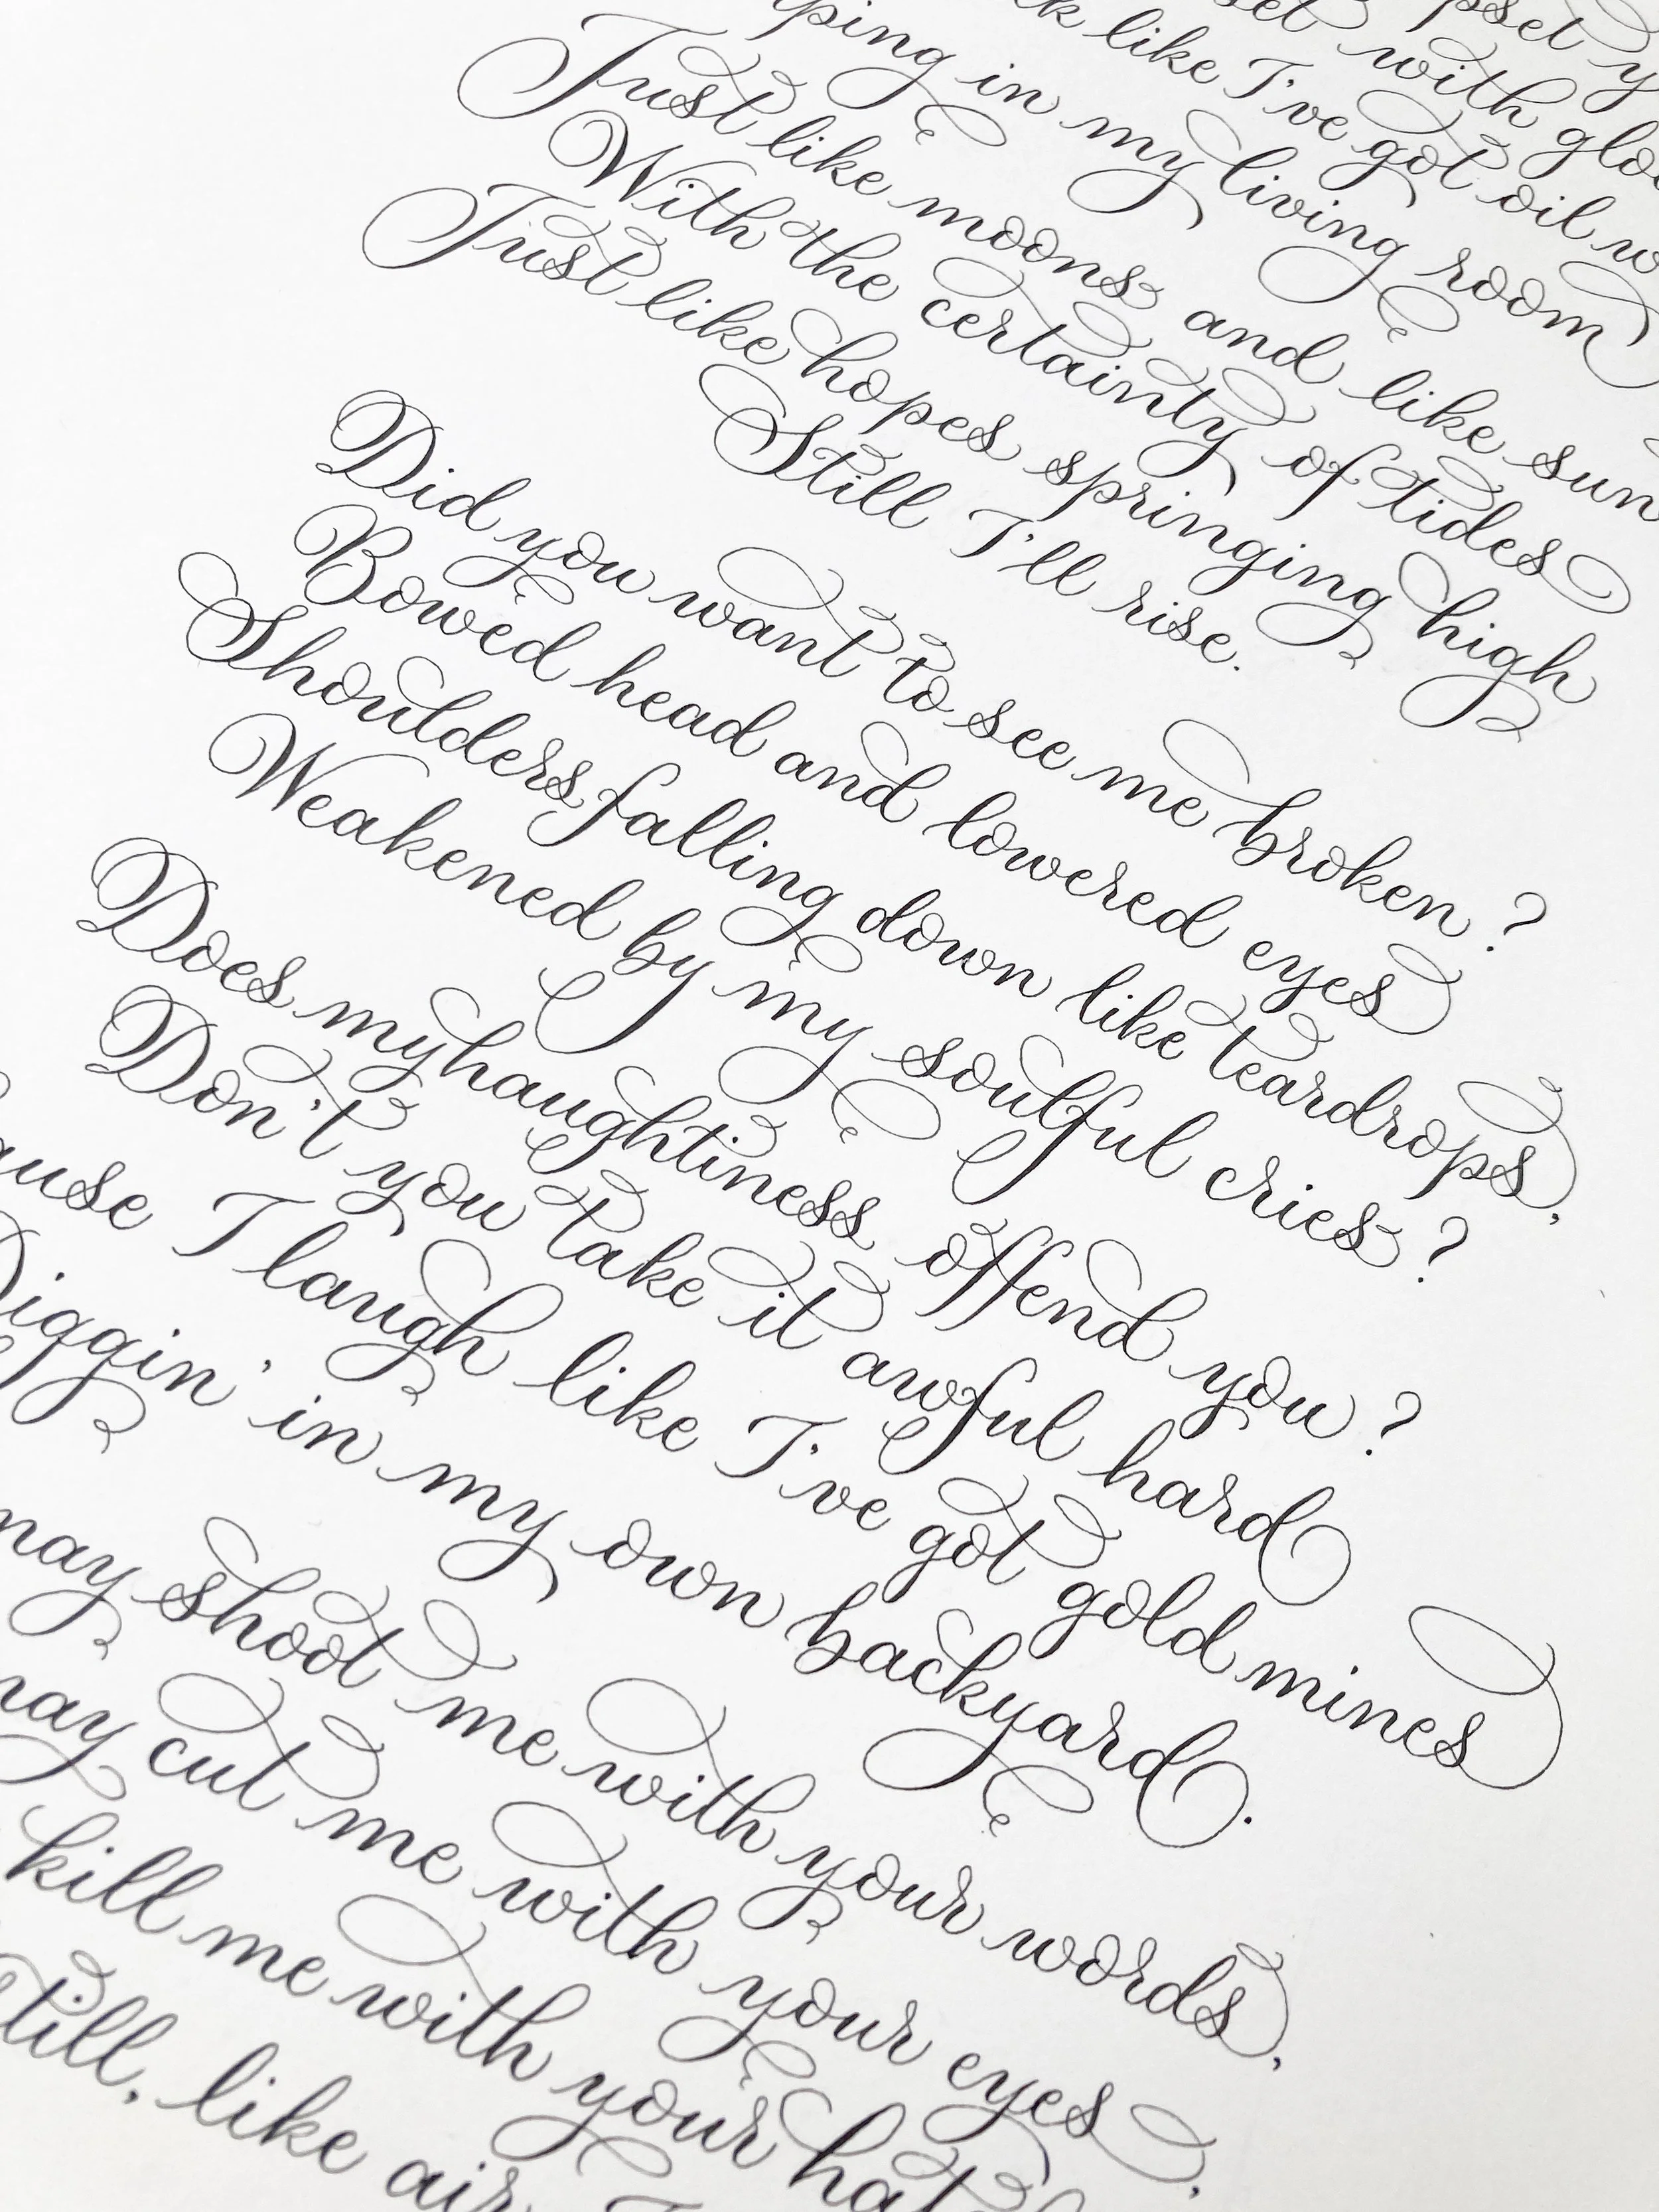 pset y
set with gloo
k like I've got oil w
ping in my living room
Just like moons and like sun
With the certainty of tides
Just like hopes springing high
Still I'll rise.
Did you want to see me broken?
Bowed head and lowered eyes
Shoulders falling down like teardrops,
Weakened by my soulful cries?
Does my haughtiness offend you?
Don't you take it awful hard
ause I laugh like I've got gold mines
Diggin' in my own backyard.
may shoot me with your words,
may cut me with your eyes,
kill me with your hat
till, like air,